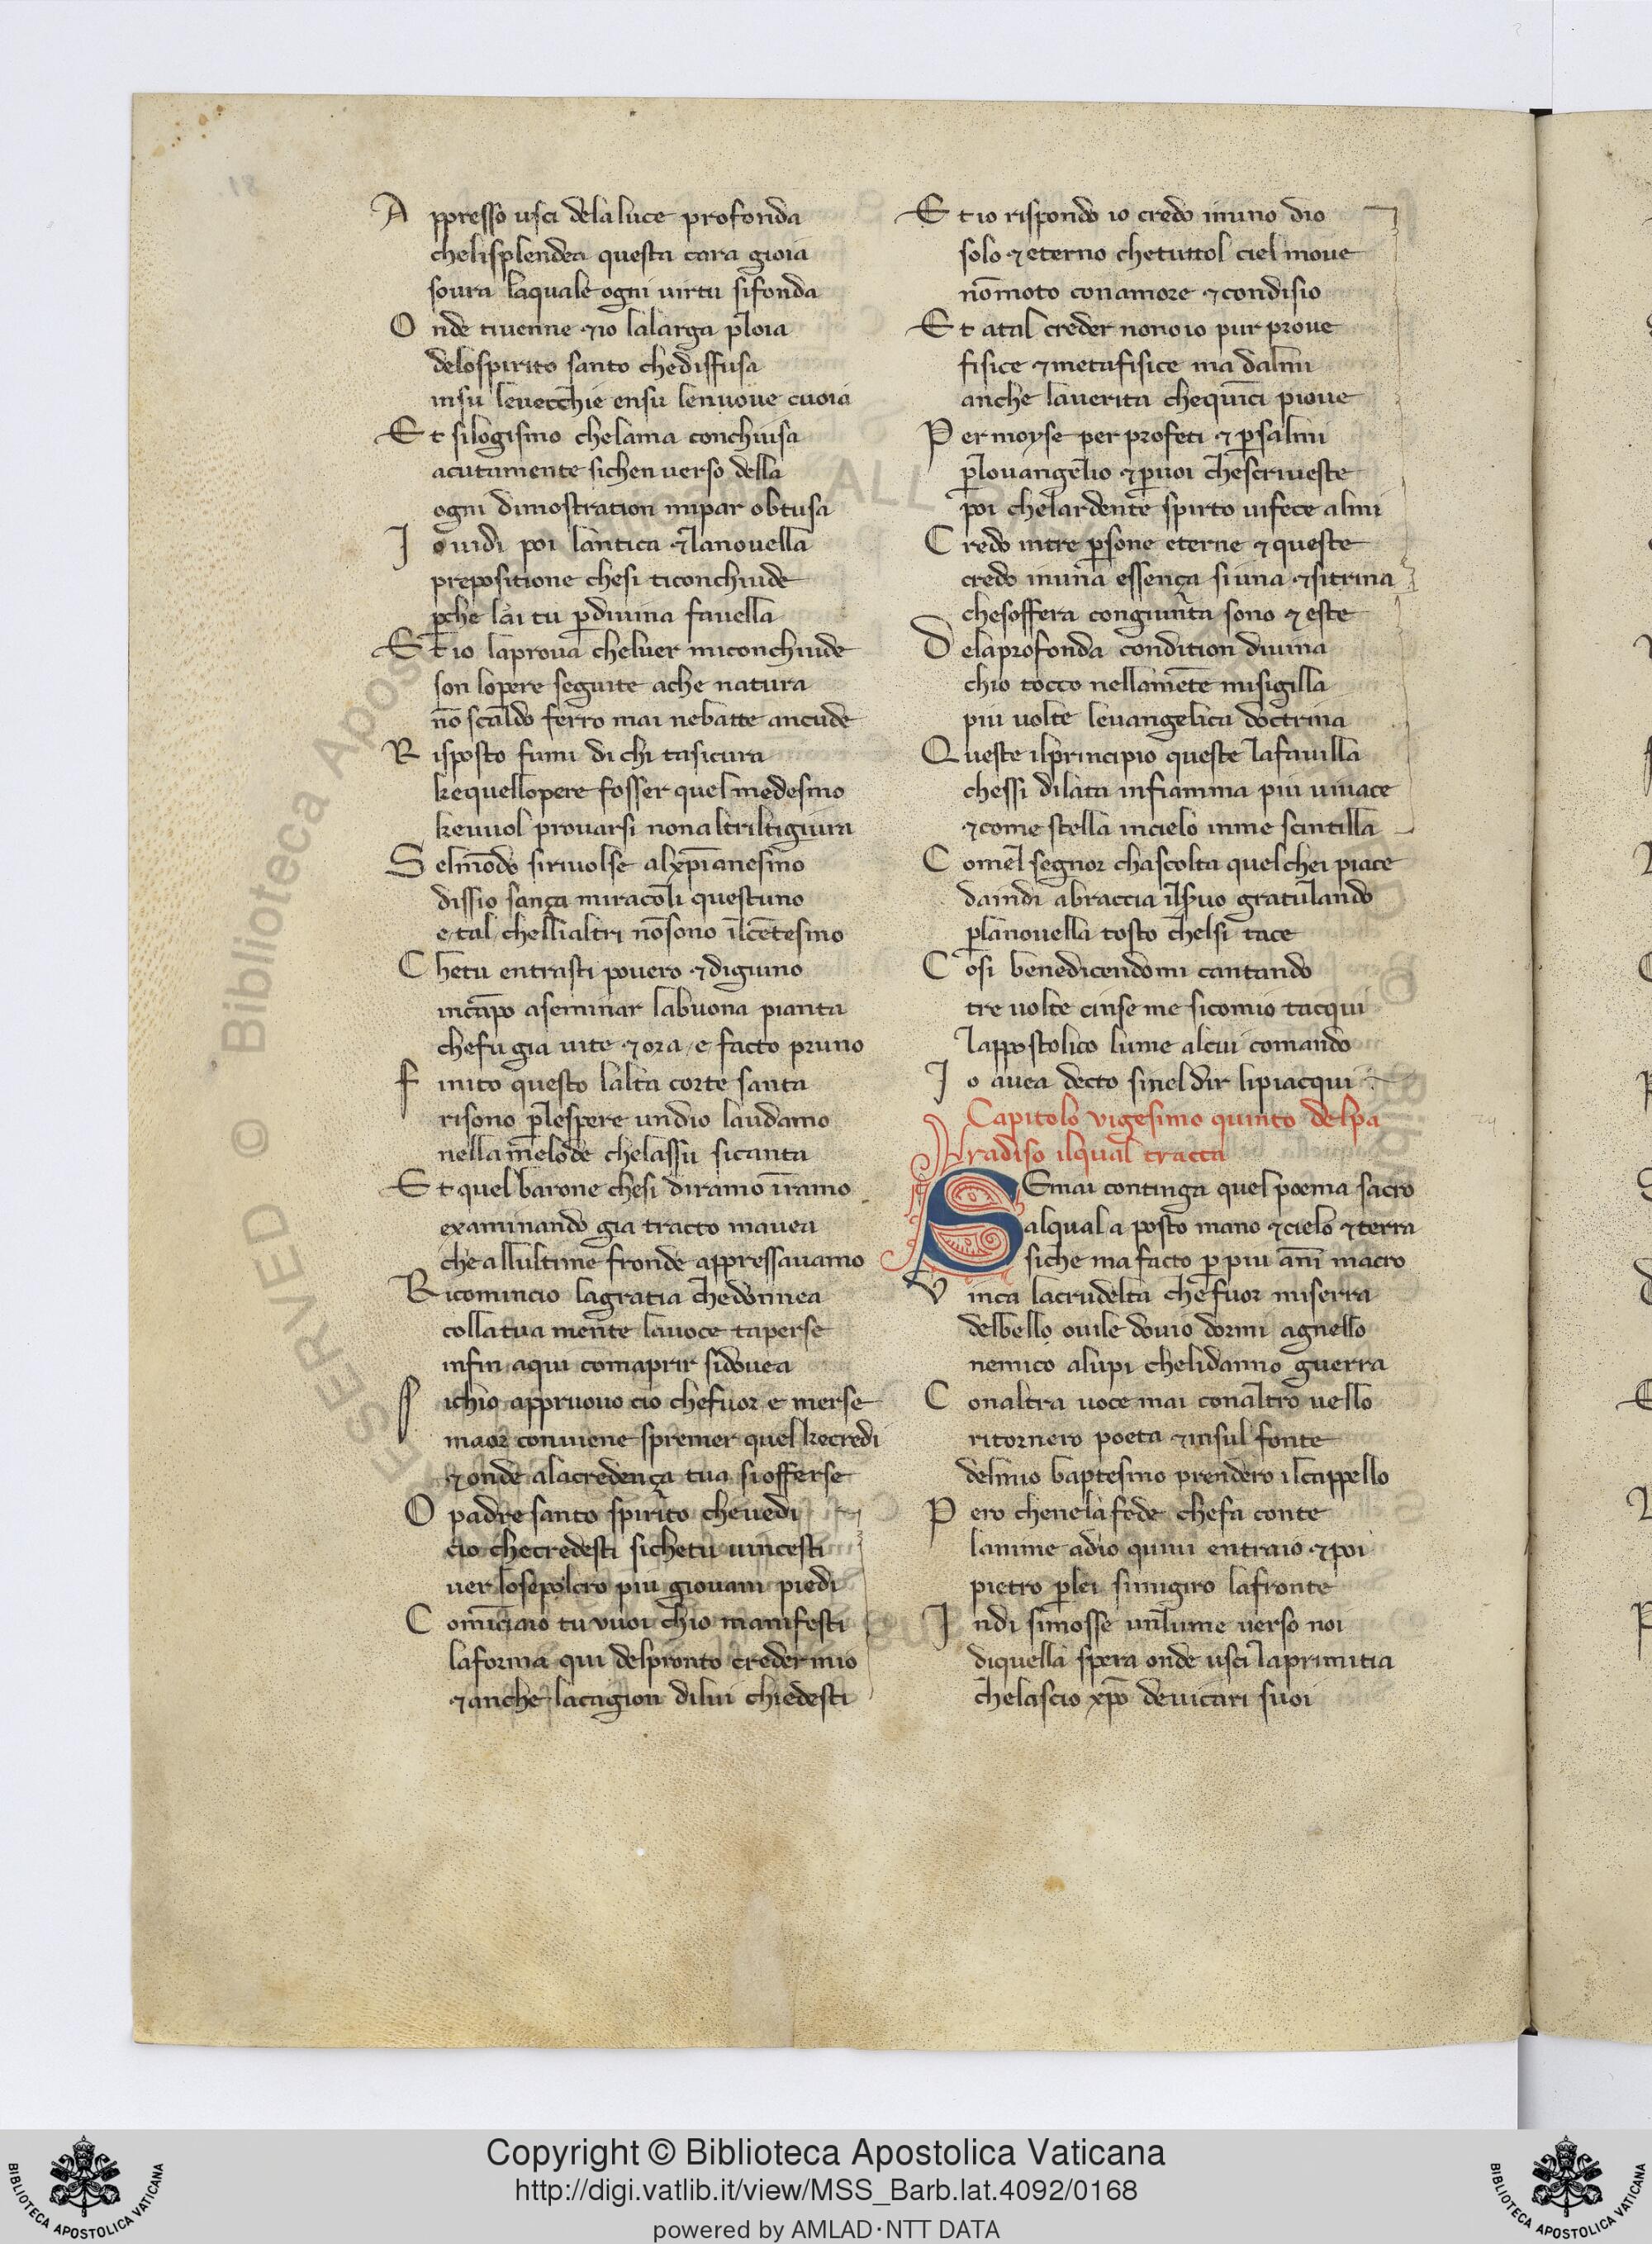 A ppresso usci delaluce profonda
chelisplendea questa cara gioia
soura laquale ogni uirtu sifonda
O nde tiuenne ⁊io lalarga ploia
delospirito santo chediffusa
insu leuecchie ensu lenuoue cuoia
E t silogismo chelama conchiusa
acutamente sichen uerso della
ogni dimostration mipar obtusa
J o uidi poi lantica ⁊lanouella
prepositione chesi ticonchiude
p̱che lai tu p̱diuina fauella
E t io laproua cheluer miconchiude
son lopere seguite ache natura
nō scaldo ferro mai nebatte ancude
R isposto fumi di chi tasicura
kequellopere fosser quel medesmo
keuuol prouarsi nonaltriltigiura
S elmōdo siriuolse alxp̄ianesmo
dissio sança miracoli questuno
e tal chellialtri nōsono ilcētesmo
C hetu entrasti pouero ⁊digiuno
incāpo aseminar labuona pianta
chefu gia uite ⁊ora e facto pruno
F inito questo lalta corte santa
risono p̱lespere undio laudamo
nella melode chelassu sicanta
E t quel barone chesi diramo īramo
examinando gia tracto mauea
che allultime fronde appressauamo
R icomincio lagratia chedonnea
collatua mente lauoce taperse
infin aqui comaprir sidouea
S ichio appruouo cio chefuor e merse
maor conuiene spremer quel kecredi
⁊onde alacredença tua siofferse
O padre santo spirito cheuedi
cio checredesti sichetu uincesti
uer losepolcro piu giouani piedi
C omīciaio tu vuoi chio manifesti
laforma qui delpronto credermio
⁊anche lacagion dilui chiedesti
E t io rispondo io credo inuno dio
solo ⁊eterno chetuttol ciel moue
nōmoto conamore ⁊condisio
E t atal creder nonoio pur proue
fisice ⁊metafisice ma dalmi
anche lauerita chequīci pioue
P er moyse per profeti ⁊ p̱salmi
p̱louangelio ⁊p̱uoi chescriueste
poi chelardente spirto uifece almi
C redo intre p̱sone eterne ⁊ queste
credo inuna essença siuna ⁊sitrina
chesoffera congiunta sono ⁊ este
D elaprofonda condition diuina
chio tocco nellamēte misigilla
piu uolte leuangelica doctrina
Q ueste ilprincipio queste lafauilla
chessi dilata infiamma piu uiuace
⁊come stella incielo inme scintilla
C omel segnor chascolta quelchei piace
daindi abraccia ilsuo gratulando
p̱lanouella tosto chelsi tace
C osi benedicendomi cantando
tre uolte cinse me sicomio tacqui
lappostolico lume alcui comando
J o auea decto sinel dir lipiacqui
Capitolo vigesimo quinto delpa
radiso ilqual tracta
SEmai continga quel poema sacro
alqual a posto mano ⁊cielo ⁊terra
siche ma facto p̱ piu āni macro
V inca lacrudelta chefuor miserra
delbello ouile douio dormi agnello
nemico alupi chelidanno guerra
C onaltra uoce mai conaltro uello
ritornero poeta ⁊insul fonte
delmio baptesmo prendero ilcappello
P ero chenela fede chefa conte
lanime adio quiui entraio ⁊poi
pietro p̱lei simigiro lafronte
I ndi simosse unlume uerso noi
diquella spera onde usci laprimitia
chelascio xp̄o deuicari suoi
Copyright © Biblioteca Apostolica Vaticana
http://digi.vatlib.it/view/MSS_Barb.lat.4092/0168
powered by AMLAD·NTT DATA
BIBLIOTECA APOSTOLICA VATICANA
BIBLIOTECA APOSTOLICA VATICANA